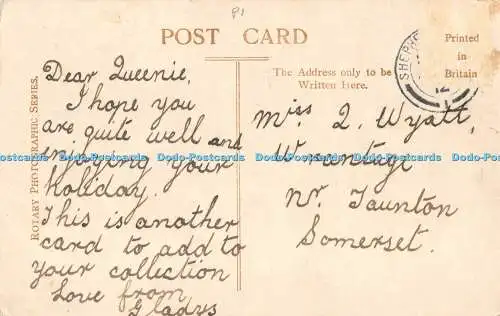 P1
POST CARD
Printed
in
Britain
The Address only to be
Written Here.
ROTARY PHOTOGRAPHIC SERIES.
Dear Queenie,
I hope you
are quite well and
enjoying your
holiday.
This is another
card to add to
your collection
Love from
Gladys
Miss Q. Wyatt,
Wrantage
Nr. Taunton
Somerset.
Dodo-Postcards Dodo-Postcards Dodo-Postcards Dodo-Postcards